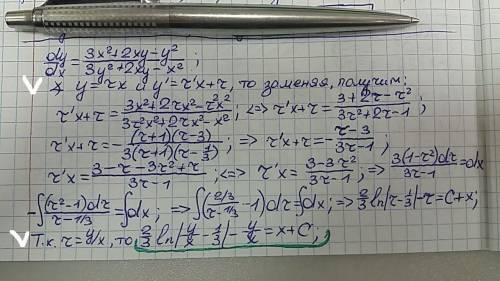 dy/dx = (3x²+2xy-y²)/(3y²+2xy-x²);
y=τx и y'=τ'x+τ, то заменяя, получим:
τ'x+τ = (3x²+2τx²-τ²x²)/(3τ²x²+2τx²-x²); <=> τ'x+τ = (3+2τ-τ²)/(3τ²+2τ-1);
τ'x+τ = -((τ+1)(τ-3))/(3(τ+1)(τ-1/3)); => τ'x+τ = -(τ-3)/(3τ-1);
τ'x = (3-τ-3τ²+τ)/(3τ-1); <=> τ'x = (3-3τ²)/(3τ-1); => (3(1-τ²)dτ)/(3τ-1) = dx
-∫((τ²-1)dτ)/(τ-1/3) = ∫dx; => ∫((2/3)/(τ-1/3) -1)dτ = ∫dx; => 2/3 ln|τ-1/3|-τ=C+x;
Т.к. τ=y/x, то 2/3 ln|y/x - 1/3| - y/x = x+C;